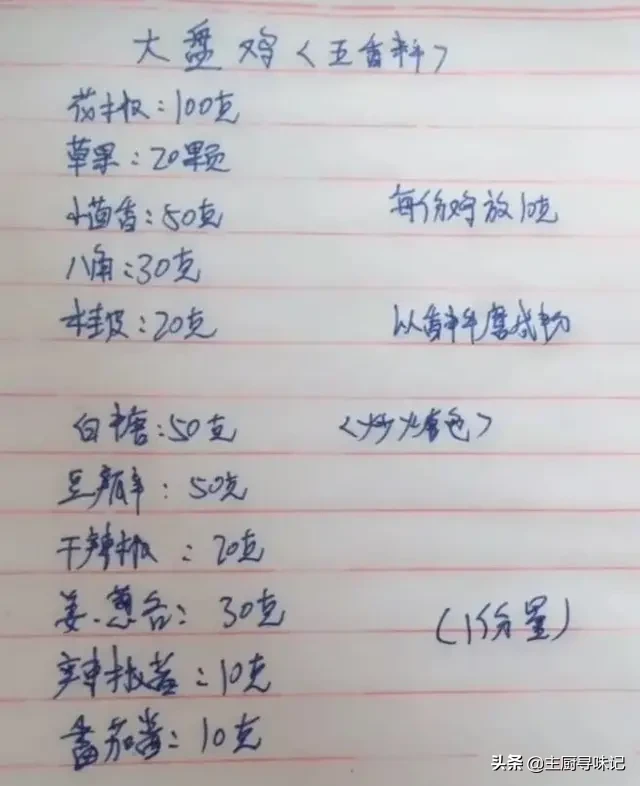 大盘鸡〈五香料〉
花椒：100克
草果：20颗
小茴香：50克 每份鸡放10克
八角：30克
桂皮：20克 以香料磨成粉
白糖：50克 〈炒火唐色〉
豆瓣：50克
干辣椒：20克
姜.葱各：30克 (1份量)
辣椒酱：10克
番茄酱：10克
头条 @主厨寻味记